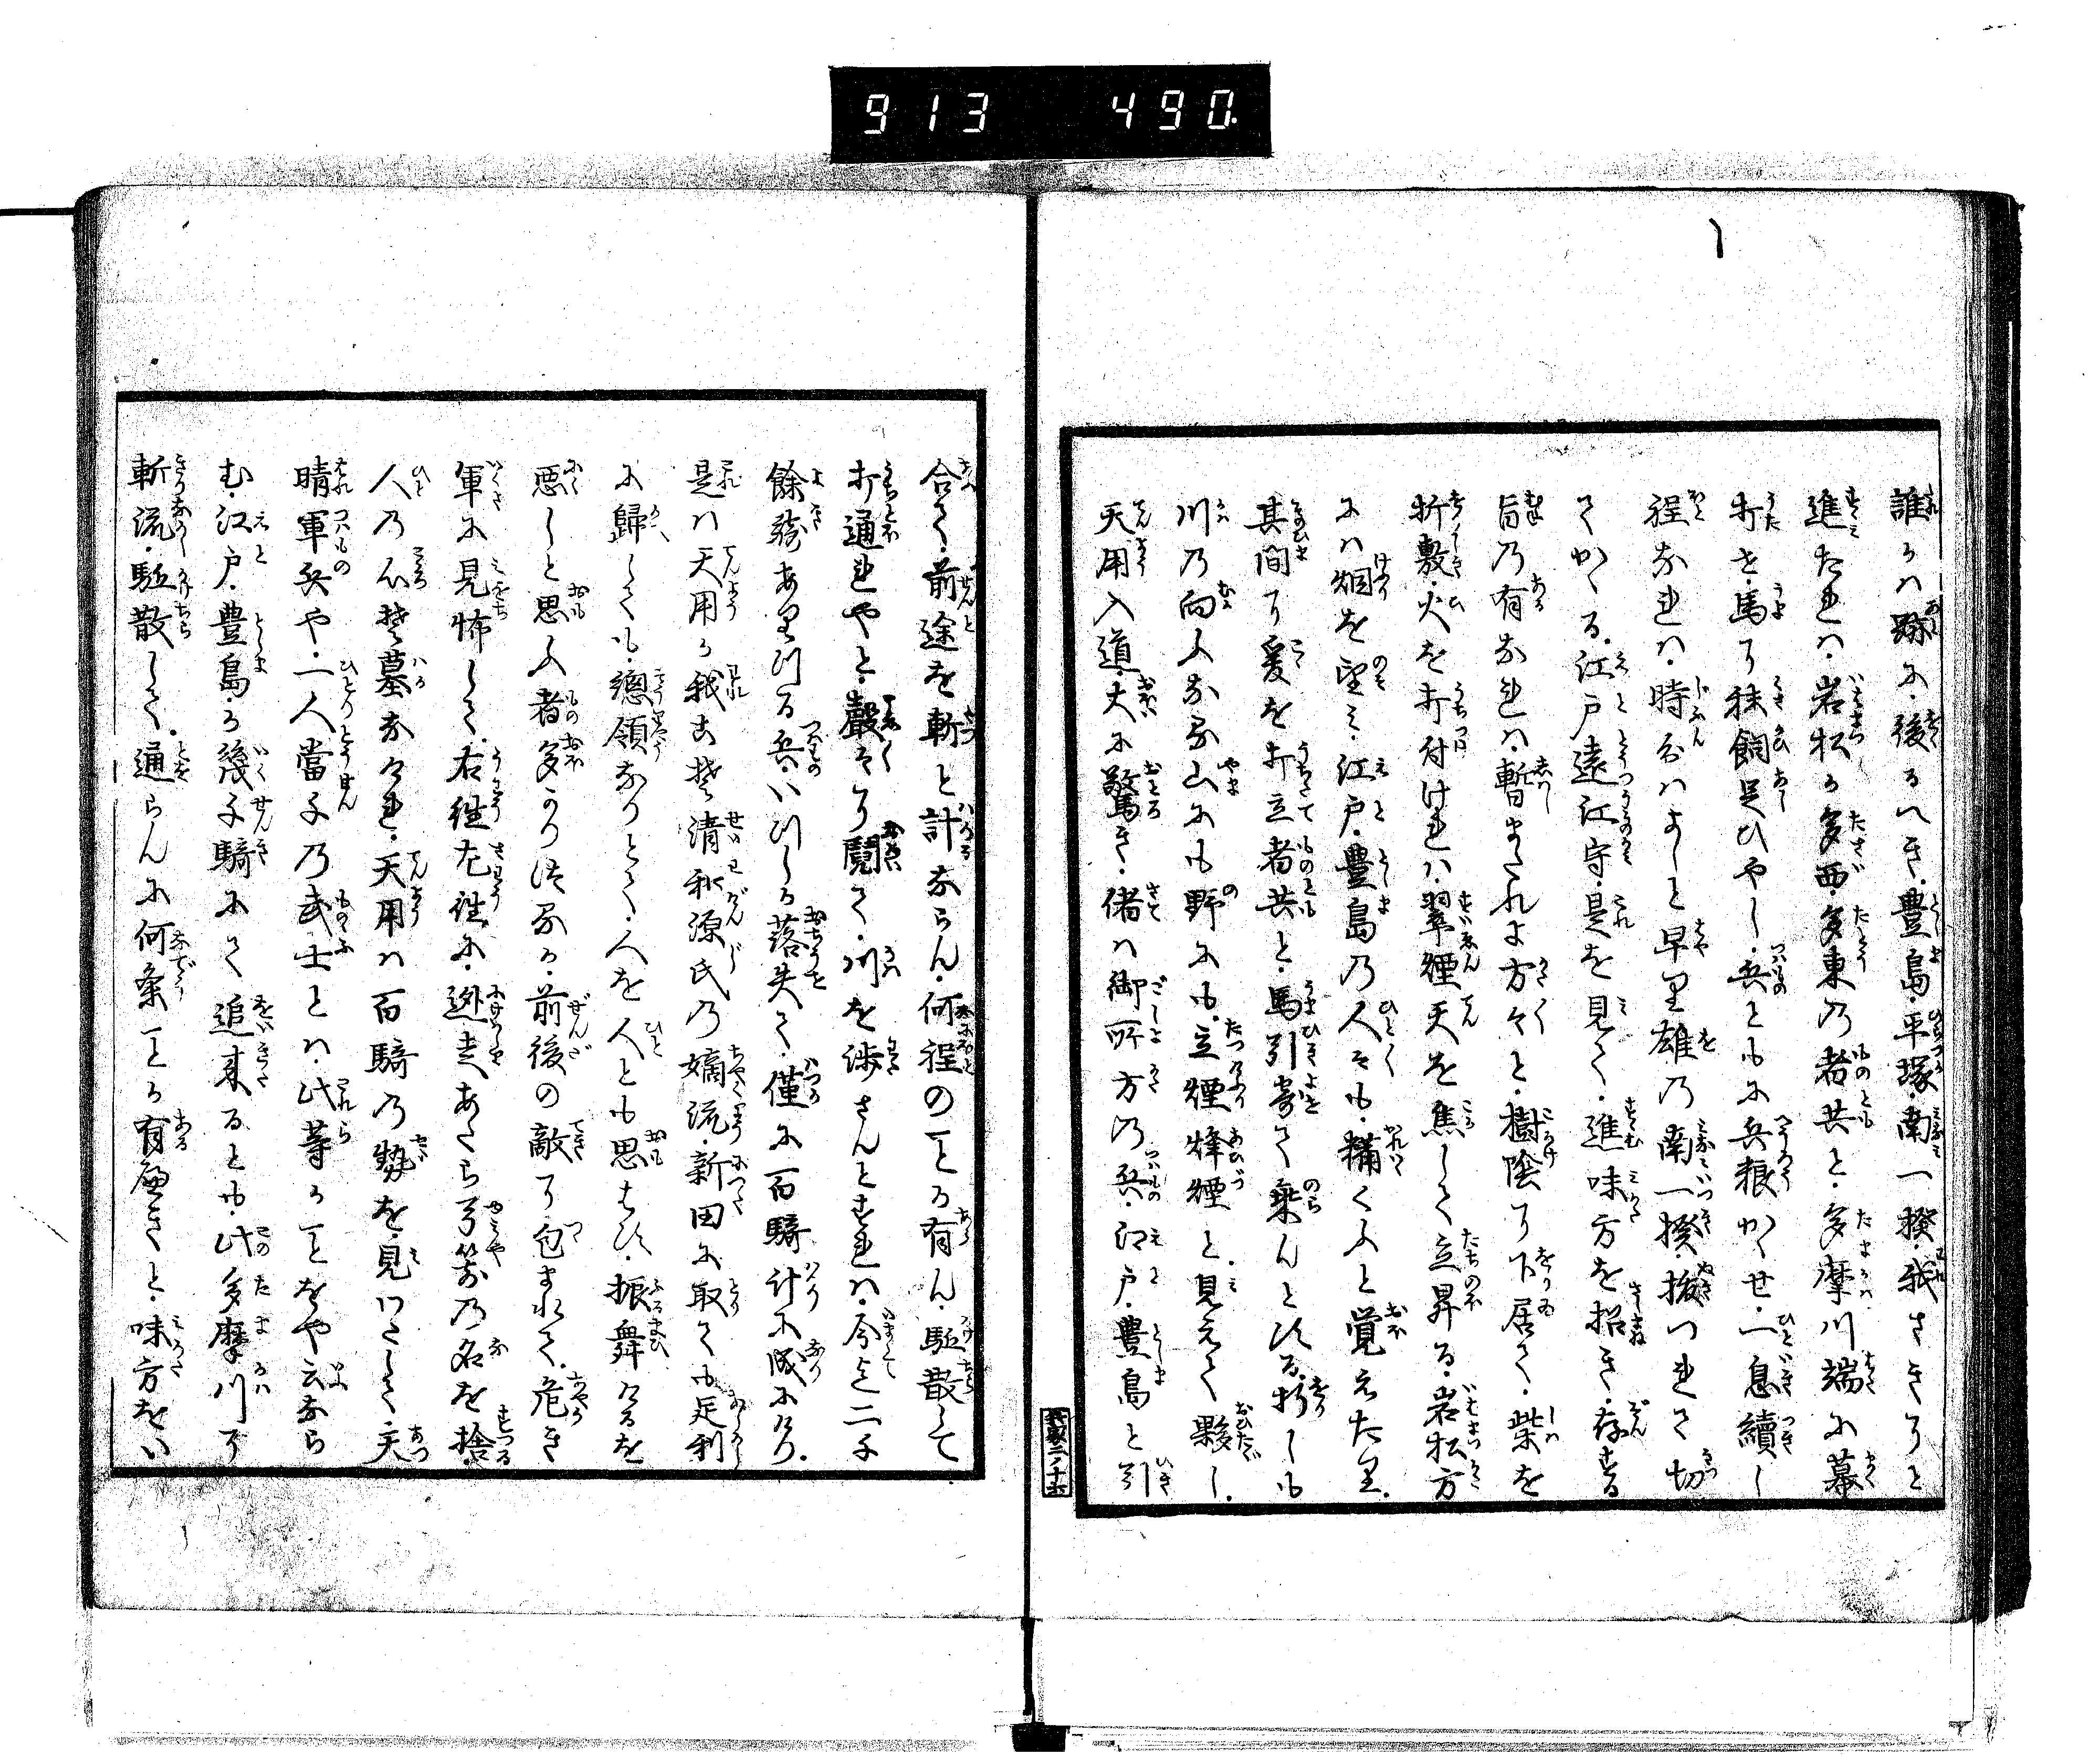 913 490.
誰かは跡に後るへき豊島平塚南一揆我さきりと
進たれは岩松か多西多東の者共と多摩川端に幕
打せ馬に秣飼足ひやし兵ともに兵粮かくせ一息續し
程なれは時分はよしと早里雄の南一揆抜つれて切
てかゝる江戸遠江守是を見て進味方を招き存る
旨の有なれは暫またれよ方々と樹陰に下居て柴を
折敷火を打付けれは翠煙天を焦して立昇る岩松方
には烟を望み江戸豊島の人々も糒くふと覚えたり
其間に爰を打立者共と馬引寄て乗んとする折しも
川の向ふなる山にも野にも立煙烽煙と見えて夥し
天用入道大に驚き偖は御所方の兵江戸豊島と引
我家二ノ十六
合て前途を斬と計ならん何程のことか有ん駈散して
打通れやと聲々に鬩て川を渉さんとすれは今迄二千
餘騎ありつる兵いつしか落失て僅に百騎計に成にけり
是は天用か我こそ清和源氏の嫡流新田に取ても足利
に歸しても總領なりとて人を人とも思はす振舞けるを
悪しと思ふ者多かりつるか前後の敵に包まれて危き
軍に見怖して右往左往に迯走あたら弓箭の名を捨
人の心そ墓なけれ天用は百騎の勢を見わたして天
晴軍兵や一人當千の武士とは此等かことをや云なら
む江戸豊島か幾千騎にて追来るとも此多摩川に
斬流駈散して通らんに何条ことか有へきと味方をい